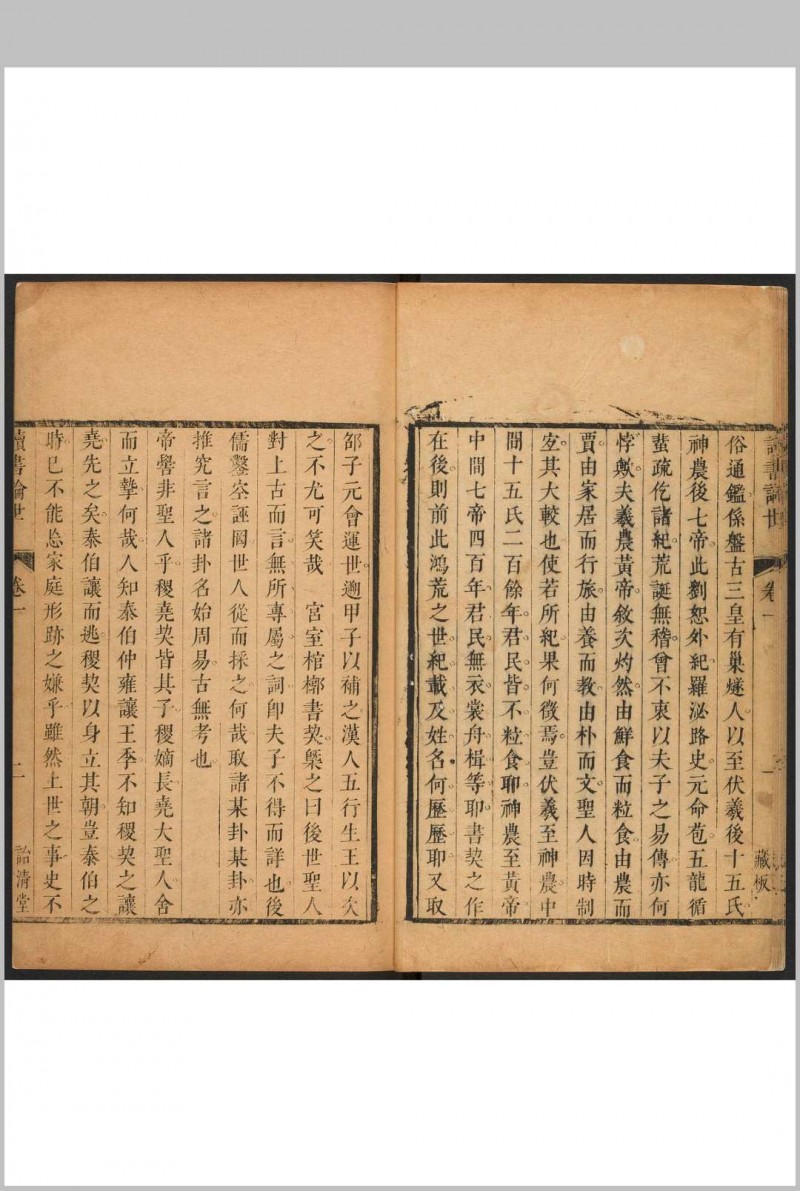 讀書論世
卷一
一
藏板
俗通鑑係盤古三皇有巢燧人以至伏羲後十五氏
神農後七帝此劉恕外紀羅泌路史元命苞五龍循
蜚疏仡諸紀荒誕無稽曾不衷以夫子之易傳亦何
悖歟夫羲農黃帝敘次灼然由鮮食而粒食由農而
賈由家居而行旅由養而教由朴而文聖人因時制
宜其大較也使若所紀果何徵焉豈伏羲至神農中
間十五氏二百餘年君民皆不粒食耶神農至黃帝
中間七帝四百年君民無衣裳舟楫等耶書契之作
在後則前此鴻荒之世紀載及姓名何歷歷耶又取
邵子元會運世遡甲子以補之漢人五行生王以次
之不尤可笑哉　宮室棺槨書契槩之曰後世聖人
對上古而言無所專屬之詞卽夫子不得而詳也後
儒鑿空誣罔世人從而採之何哉取諸某卦某卦亦
推究言之諸卦名始周易古無考也
帝嚳非聖人乎稷堯契皆其子稷嫡長堯大聖人舍
而立摯何哉人知泰伯仲雍讓王季不知稷契之讓
堯先之矣泰伯讓而逃稷契以身立其朝豈泰伯之
時已不能忘家庭形跡之嫌乎雖然上世之事史不
讀書論世
卷一
二
詒清堂